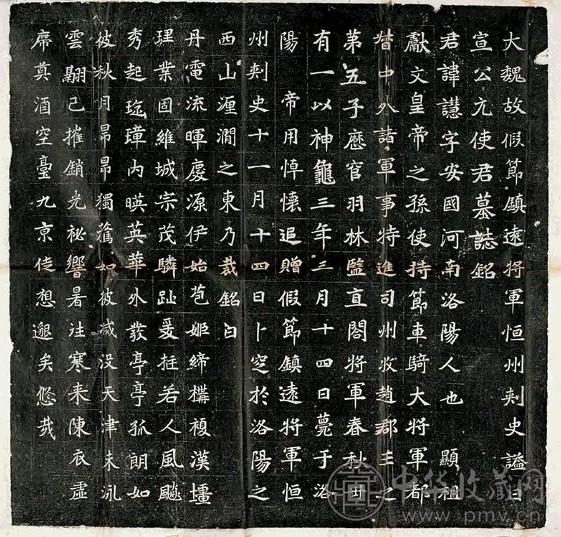 大魏故假節鎮遠將軍恒州刾史謚曰
宣公元使君墓誌銘
君諱譿字安國河南洛陽人也 顯祖
獻文皇帝之孫使持節車騎大將軍都
督中外諸軍事特進司州牧趙郡王之
第五子歷官羽林監直閤將軍春秋卅
有一以神龜三年三月十四日薨于洛
陽 帝用悼懷追贈假節鎮遠將軍恒
州刾史十一月十四日卜窆於洛陽之
西山瀍澗之東乃裁銘曰
丹電流暉慶源伊始苞姬締構複漢壃
理業固維城宗茂驎趾爰挺若人風飈
秀起琁璋内暎英華外發亭亭孤朗如
彼秋月昂昂獨騖如彼滅没天津未泳
雲翮已摧銷光祕響暑往寒来陳衣虛
席奠酒空臺九京徒想邈矣悠哉
中华收藏网
www.pmv.cn